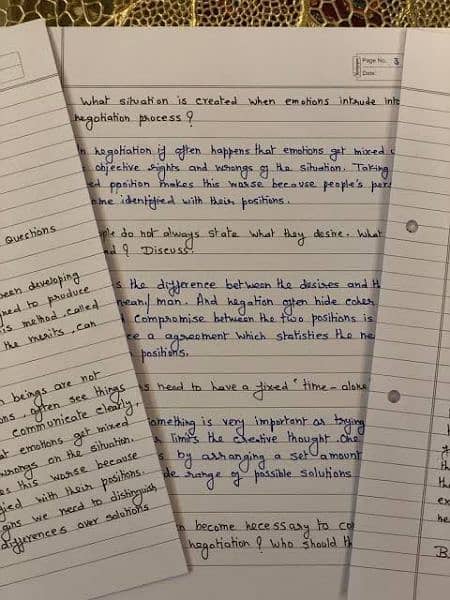 Page No. 3
Date:
What situation is created when emotions intrude into
negotiation process ?
negotiation it often happens that emotions get mixed
objective rights and wrongs of the situation. Taking
position makes this worse because people's per
identified with their positions.
do not always state what they desire. What
? Discuss.
the difference between the desires and th
mean/ man. And negation often hide
compromise between the two positions is
a agreement which statisties the ne
positions.
need to have a fixed "time - alone
omething is very important as trying
limits the creative thought. One
by arranging a set amount
range of possible solutions
become necessary to co
negotiation ? Who should th
Questions
been developing
ned to produce
is method, called
the merits, can
beings are not
ons, often see things
communicate clearly,
at emotions get mixed
wrongs on the situation.
es this worse because
fied with their positions.
gins we need to distinguish
differences over solutions
th
the
ex
he
B